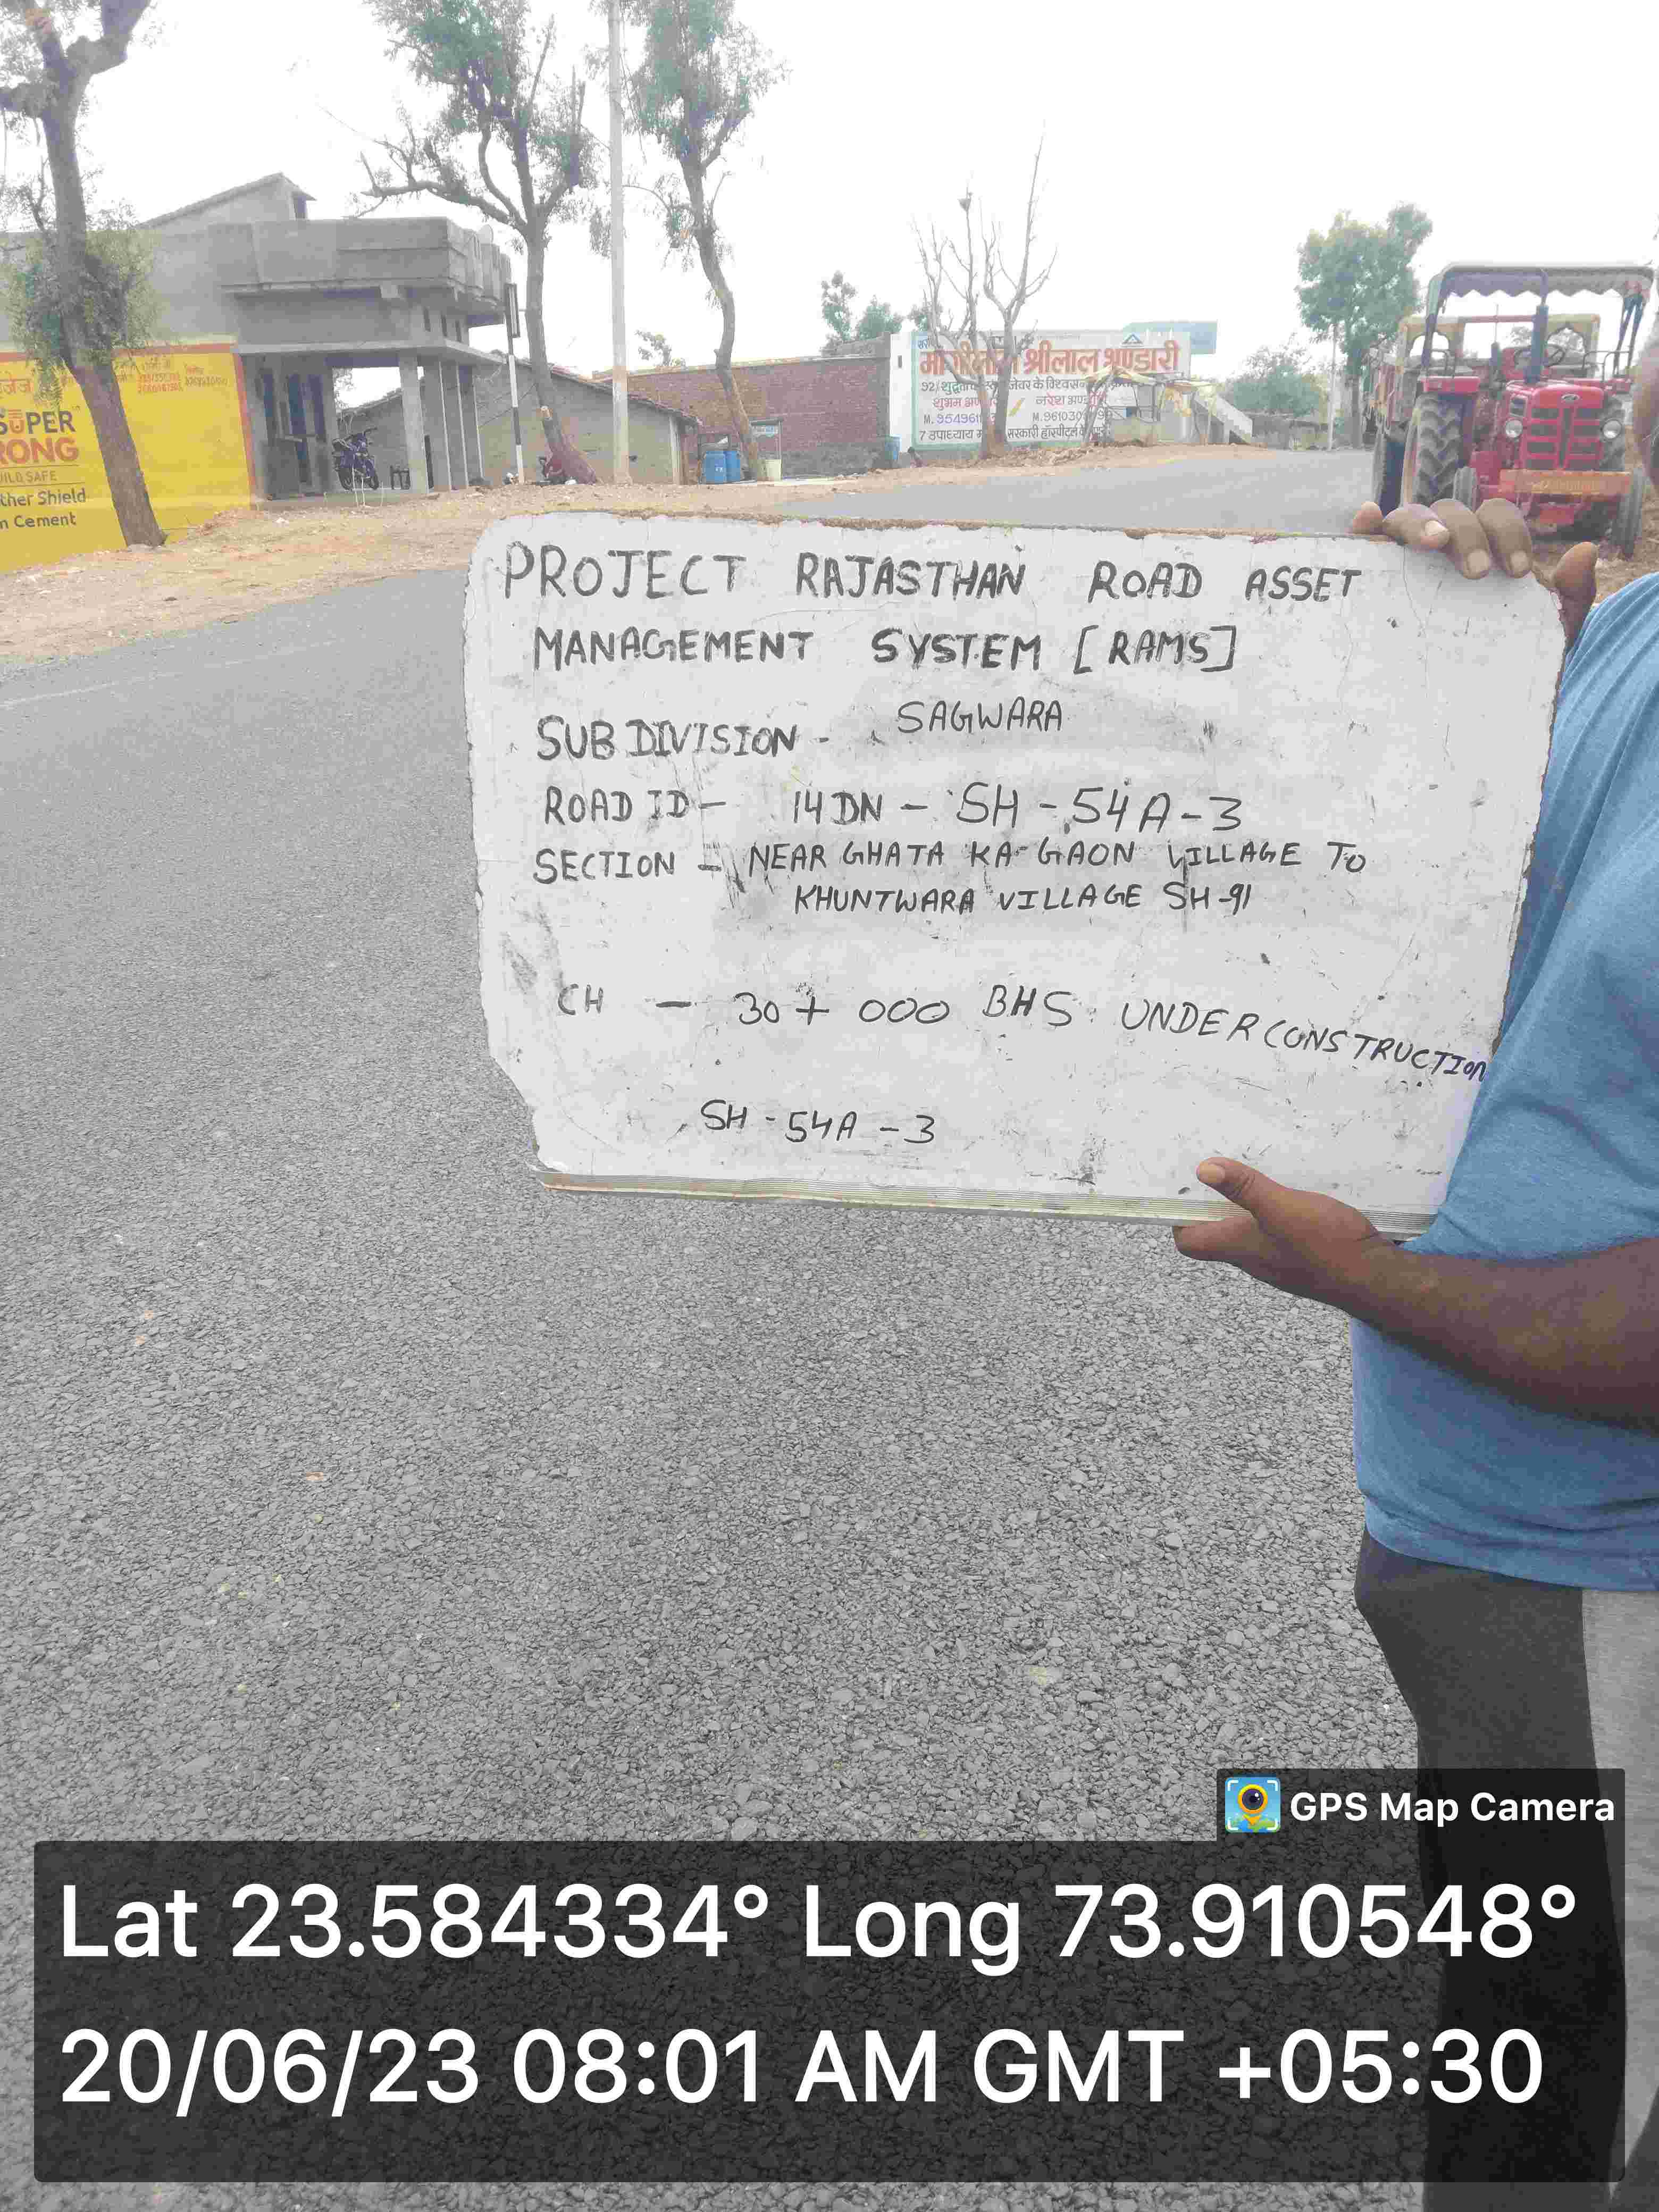 SUPER
RONG
BUILD SAFE
ther Shield
n Cement
श्रीलाल भण्डारी
PROJECT RAJASTHAN ROAD ASSET
MANAGEMENT SYSTEM [RAMS]
SUB DIVISION - SAGWARA
ROAD ID - 14DN - SH - 54A - 3
SECTION - NEAR GHATA KA GAON VILLAGE TO
KHUNTWARA VILLAGE SH-91
CH - 30+000 BHS UNDERCONSTRUCTION
SH - 54A - 3
GPS Map Camera
Lat 23.584334° Long 73.910548°
20/06/23 08:01 AM GMT +05:30